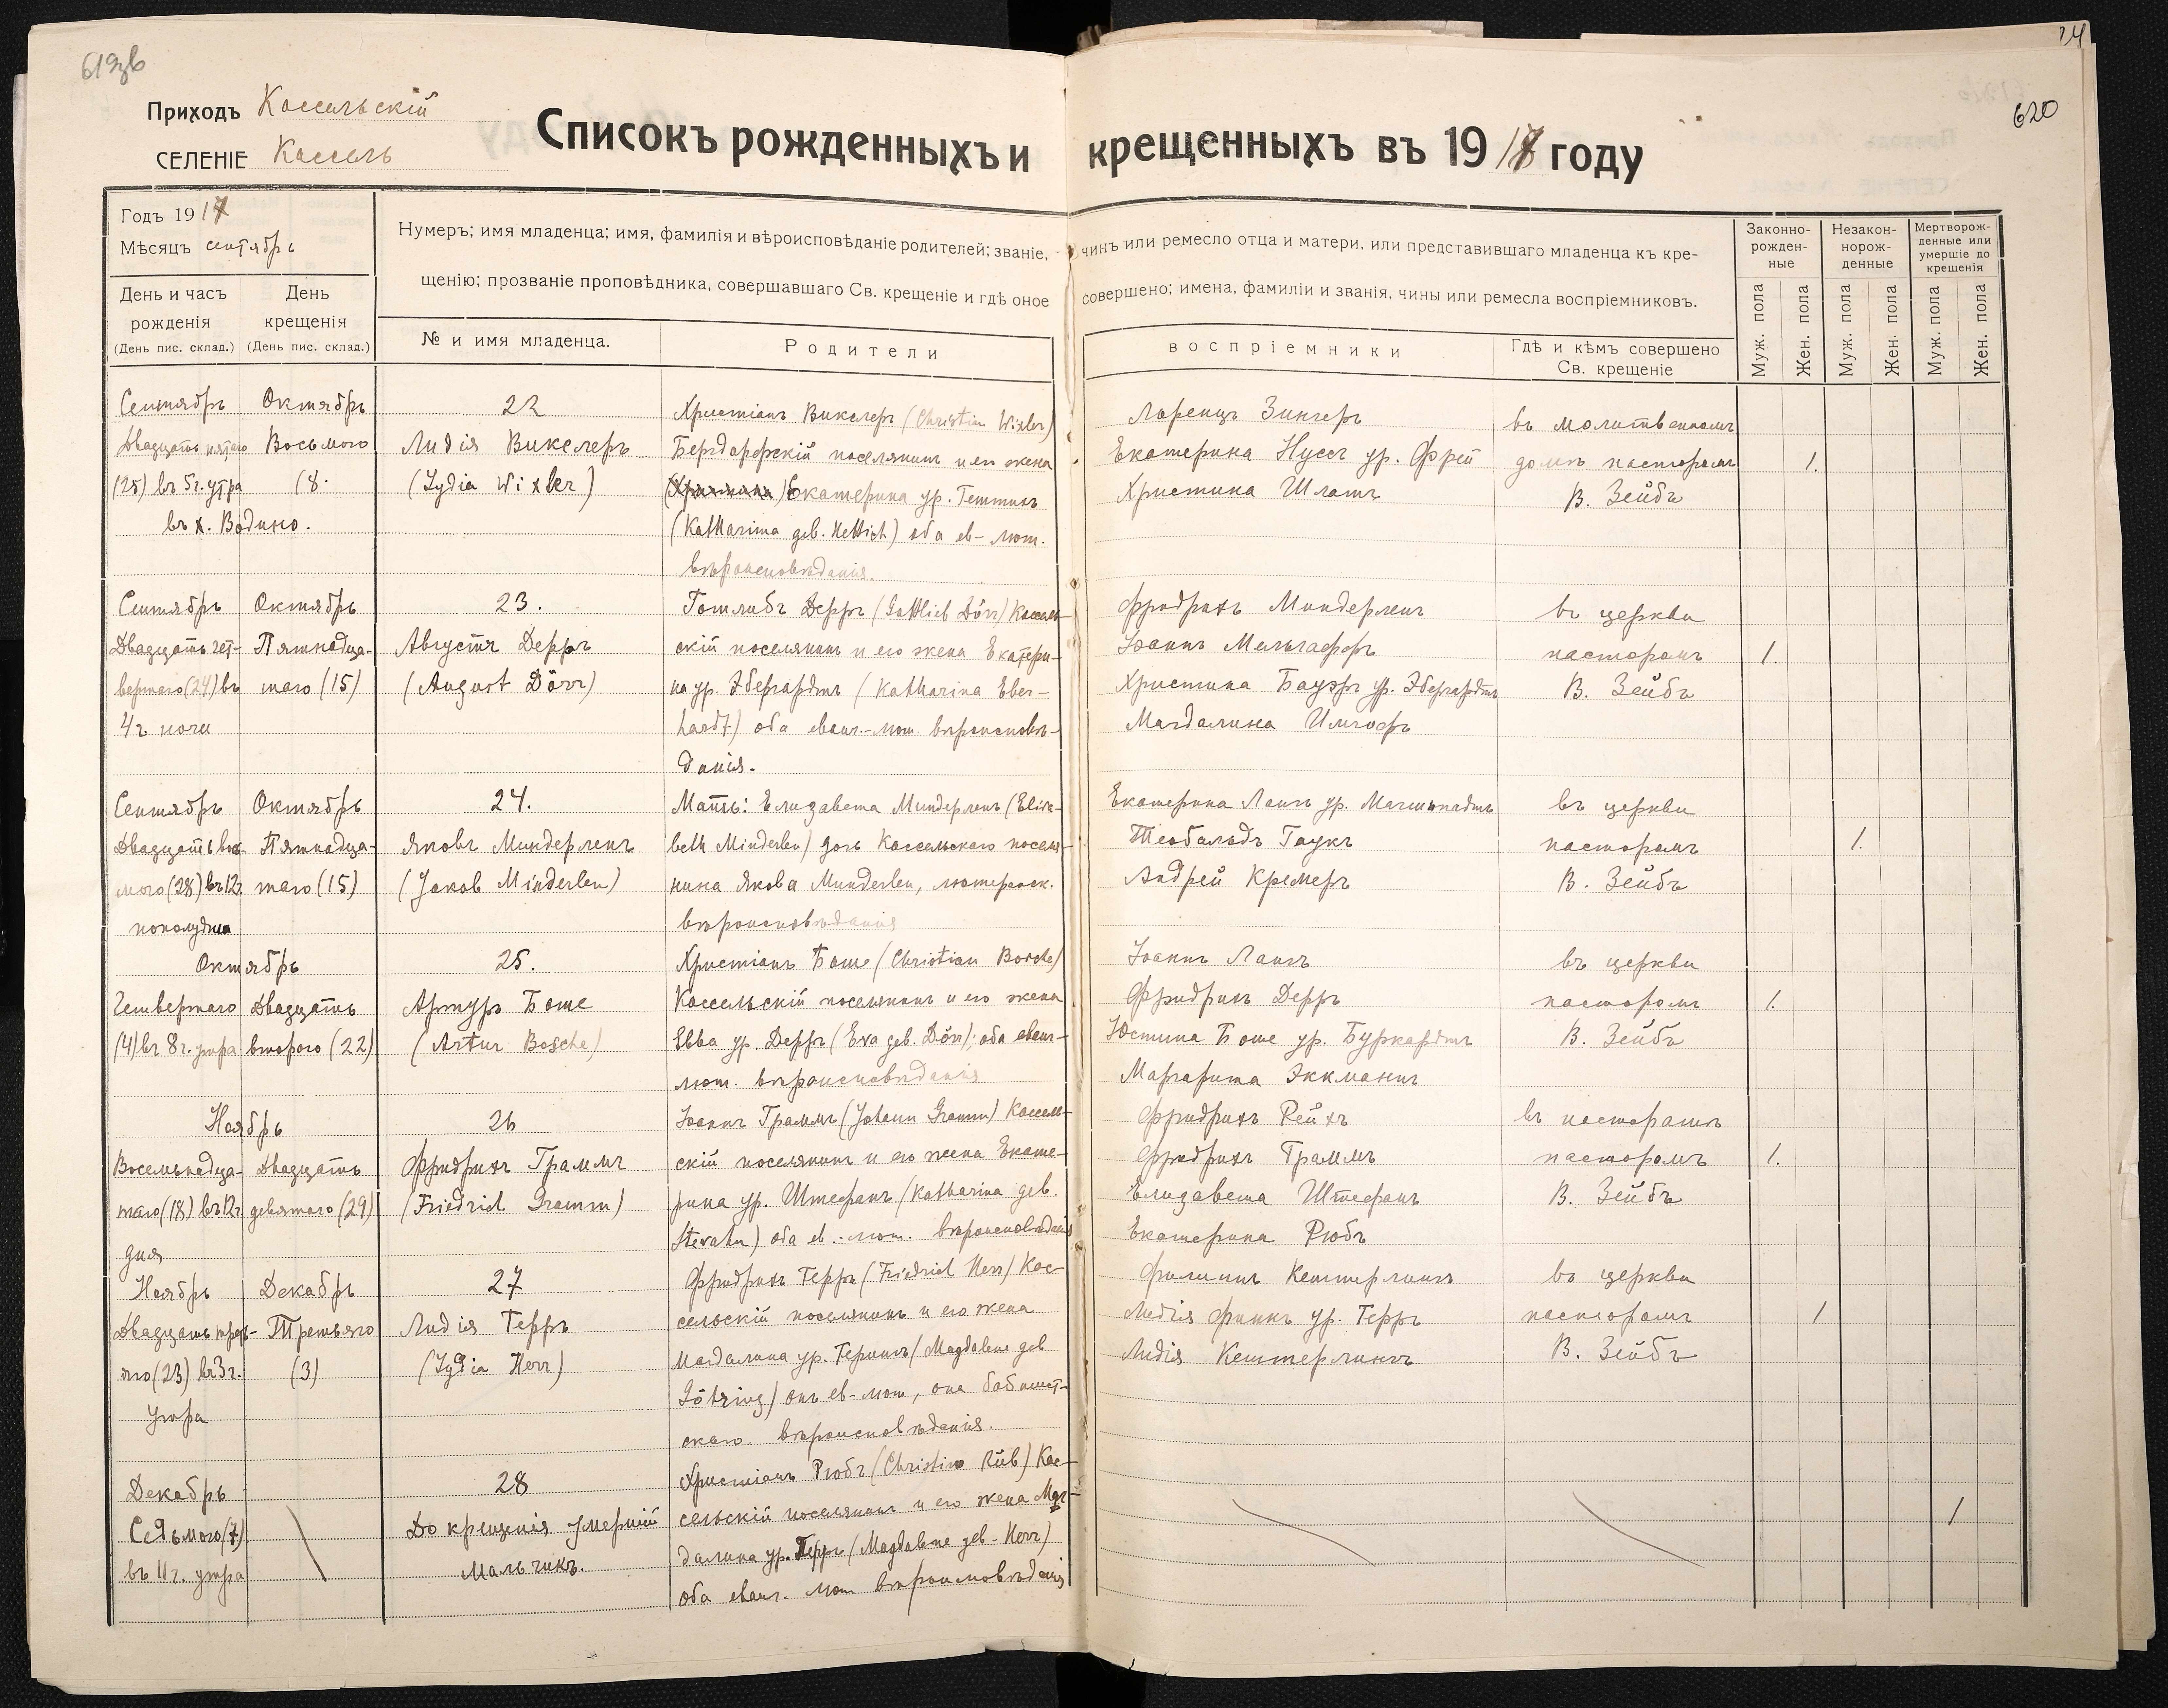 619зв
24
620
Приходъ Кассельскій
СЕЛЕНІЕ Кассель
Списокъ рожденныхъ и крещенныхъ въ 1917 году
Годъ 1917
Мѣсяцъ сентябрь
Нумеръ; имя младенца; имя, фамилія и вѣроисповѣданіе родителей; званіе, чинъ или ремесло отца и матери, или представившаго младенца къ кре-
щенію; прозваніе проповѣдника, совершавшаго Св. крещеніе и гдѣ оное совершено; имена, фамиліи и званія, чины или ремесла воспріемниковъ.
День и часъ рожденія
(День пис. склад.)
День крещенія
(День пис. склад.)
№ и имя младенца.
Родители
воспріемники
Гдѣ и кѣмъ совершено
Св. крещеніе
Законно-
рожден-
ные
Незакон-
норож-
денные
Мертворож-
денные или
умершіе до
крещенія
Муж. пола
Жен. пола
Муж. пола
Жен. пола
Муж. пола
Жен. пола
Сентябрь
Двадцать пятаго
(25) въ 5 ч. утра
въ х. Водино.
Октябрь
Восьмого
(8.
22
Лидія Викслеръ
(Lydia Wixler)
Христіанъ Викслеръ (Christian Wixler)
Бергдорфскій поселянинъ и его жена
Екатерина ур. Геттихъ
(Katharina geb. Hettich) оба ев-лют.
вѣроисповѣданія.
Лоренцъ Зингеръ
Екатерина Нусъ ур. Фрей
Христина Шлатъ
въ молитвенномъ
домѣ пасторомъ
В. Зейбъ
1.
Сентябрь
Двадцать чет-
вертаго (24) въ
4 ч ночи
Октябрь
Пятнадца-
таго (15)
23.
Августъ Дерръ
(August Dörr)
Готлибъ Дерръ (Gottlieb Dörr) Кассель-
скій поселянинъ и его жена Екатери-
на ур. Эбергардтъ (Katharina Eber-
hardt) оба еванг.-лют. вѣроисповѣ-
данія.
Фридрихъ Миндерленъ
Іоаннъ Мельгаффъ
Христина Бауэръ ур. Эбергардтъ
Магдалина Имгофъ
въ церкви
пасторомъ
В. Зейбъ
1.
Сентябрь
Двадцать вось-
мого (28) въ 12ч
пополудни
Октябрь
Пятнадца-
таго (15)
24.
Яковъ Миндерленъ
(Jakob Minderlen)
Мать: Елизавета Миндерленъ (Elisa-
beth Minderlen) дочь Кассельскаго поселя-
нина Якова Minderlen, лютеранск.
вѣроисповѣданія
Екатерина Лангъ ур.
Теобальдъ Гаукъ
Андрей Кремеръ
въ церкви
пасторомъ
В. Зейбъ
1.
Октябрь
Четвертаго
(4) въ 8 ч. утра
Двадцать
второго (22)
25.
Артуръ Боше
(Artur Bosche)
Христіанъ Боше (Christian Bosche)
Кассельскій поселянинъ и его жена
Евва ур. Дерръ (Eva geb. Dörr); оба еванг-
лют. вѣроисповѣданія
Іоаннъ Лангъ
Фридрихъ Дерръ
Юстина Боше ур. Буркардтъ
Маргарита Эккманнъ
въ церкви
пасторомъ
В. Зейбъ
1.
Ноябрь
Восемнадца-
таго (18) въ 12ч.
дня
Двадцать
девятаго (29)
26
Фридрихъ Граммъ
(Friedrich Gramm)
Іоаннъ Граммъ (Johann Gramm) Кассель-
скій поселянинъ и его жена Екате-
рина ур. Штефанъ (Katharina geb.
Stevahn) оба ев.-лют. вѣроисповѣданія
Фридрихъ Рейхъ
Фридрихъ Граммъ
Елизавета Штефанъ
Екатерина Рюбъ
въ пасторатѣ
пасторомъ
В. Зейбъ
1.
Ноябрь
Двадцать треть-
яго (23) въ 3 ч.
утра
Декабрь
Третьяго
(3)
27
Лидія Герръ
(Lydia Herr)
Фридрихъ Герръ (Friedrich Herr) Кас-
сельскій поселянинъ и его жена
Магдалина ур. Герингъ (Magdalene geb
Göhring) онъ ев-лют, она баптист-
скаго вѣроисповѣданія.
Филиппъ Кеттерлингъ
Лидія Финкъ ур. Герръ
Лидія Кеттерлингъ
въ церкви
пасторомъ
В. Зейбъ
1
Декабрь
Седьмого (7)
въ 11 ч. утра
28
До крещенія умершій
Мальчикъ.
Христіанъ Рюбъ (Christian Rüb) Кас-
сельскій поселянинъ и его жена Маг-
далина ур. Герръ (Magdalene geb-Herr)
оба еванг. лют вѣроисповѣданія
1